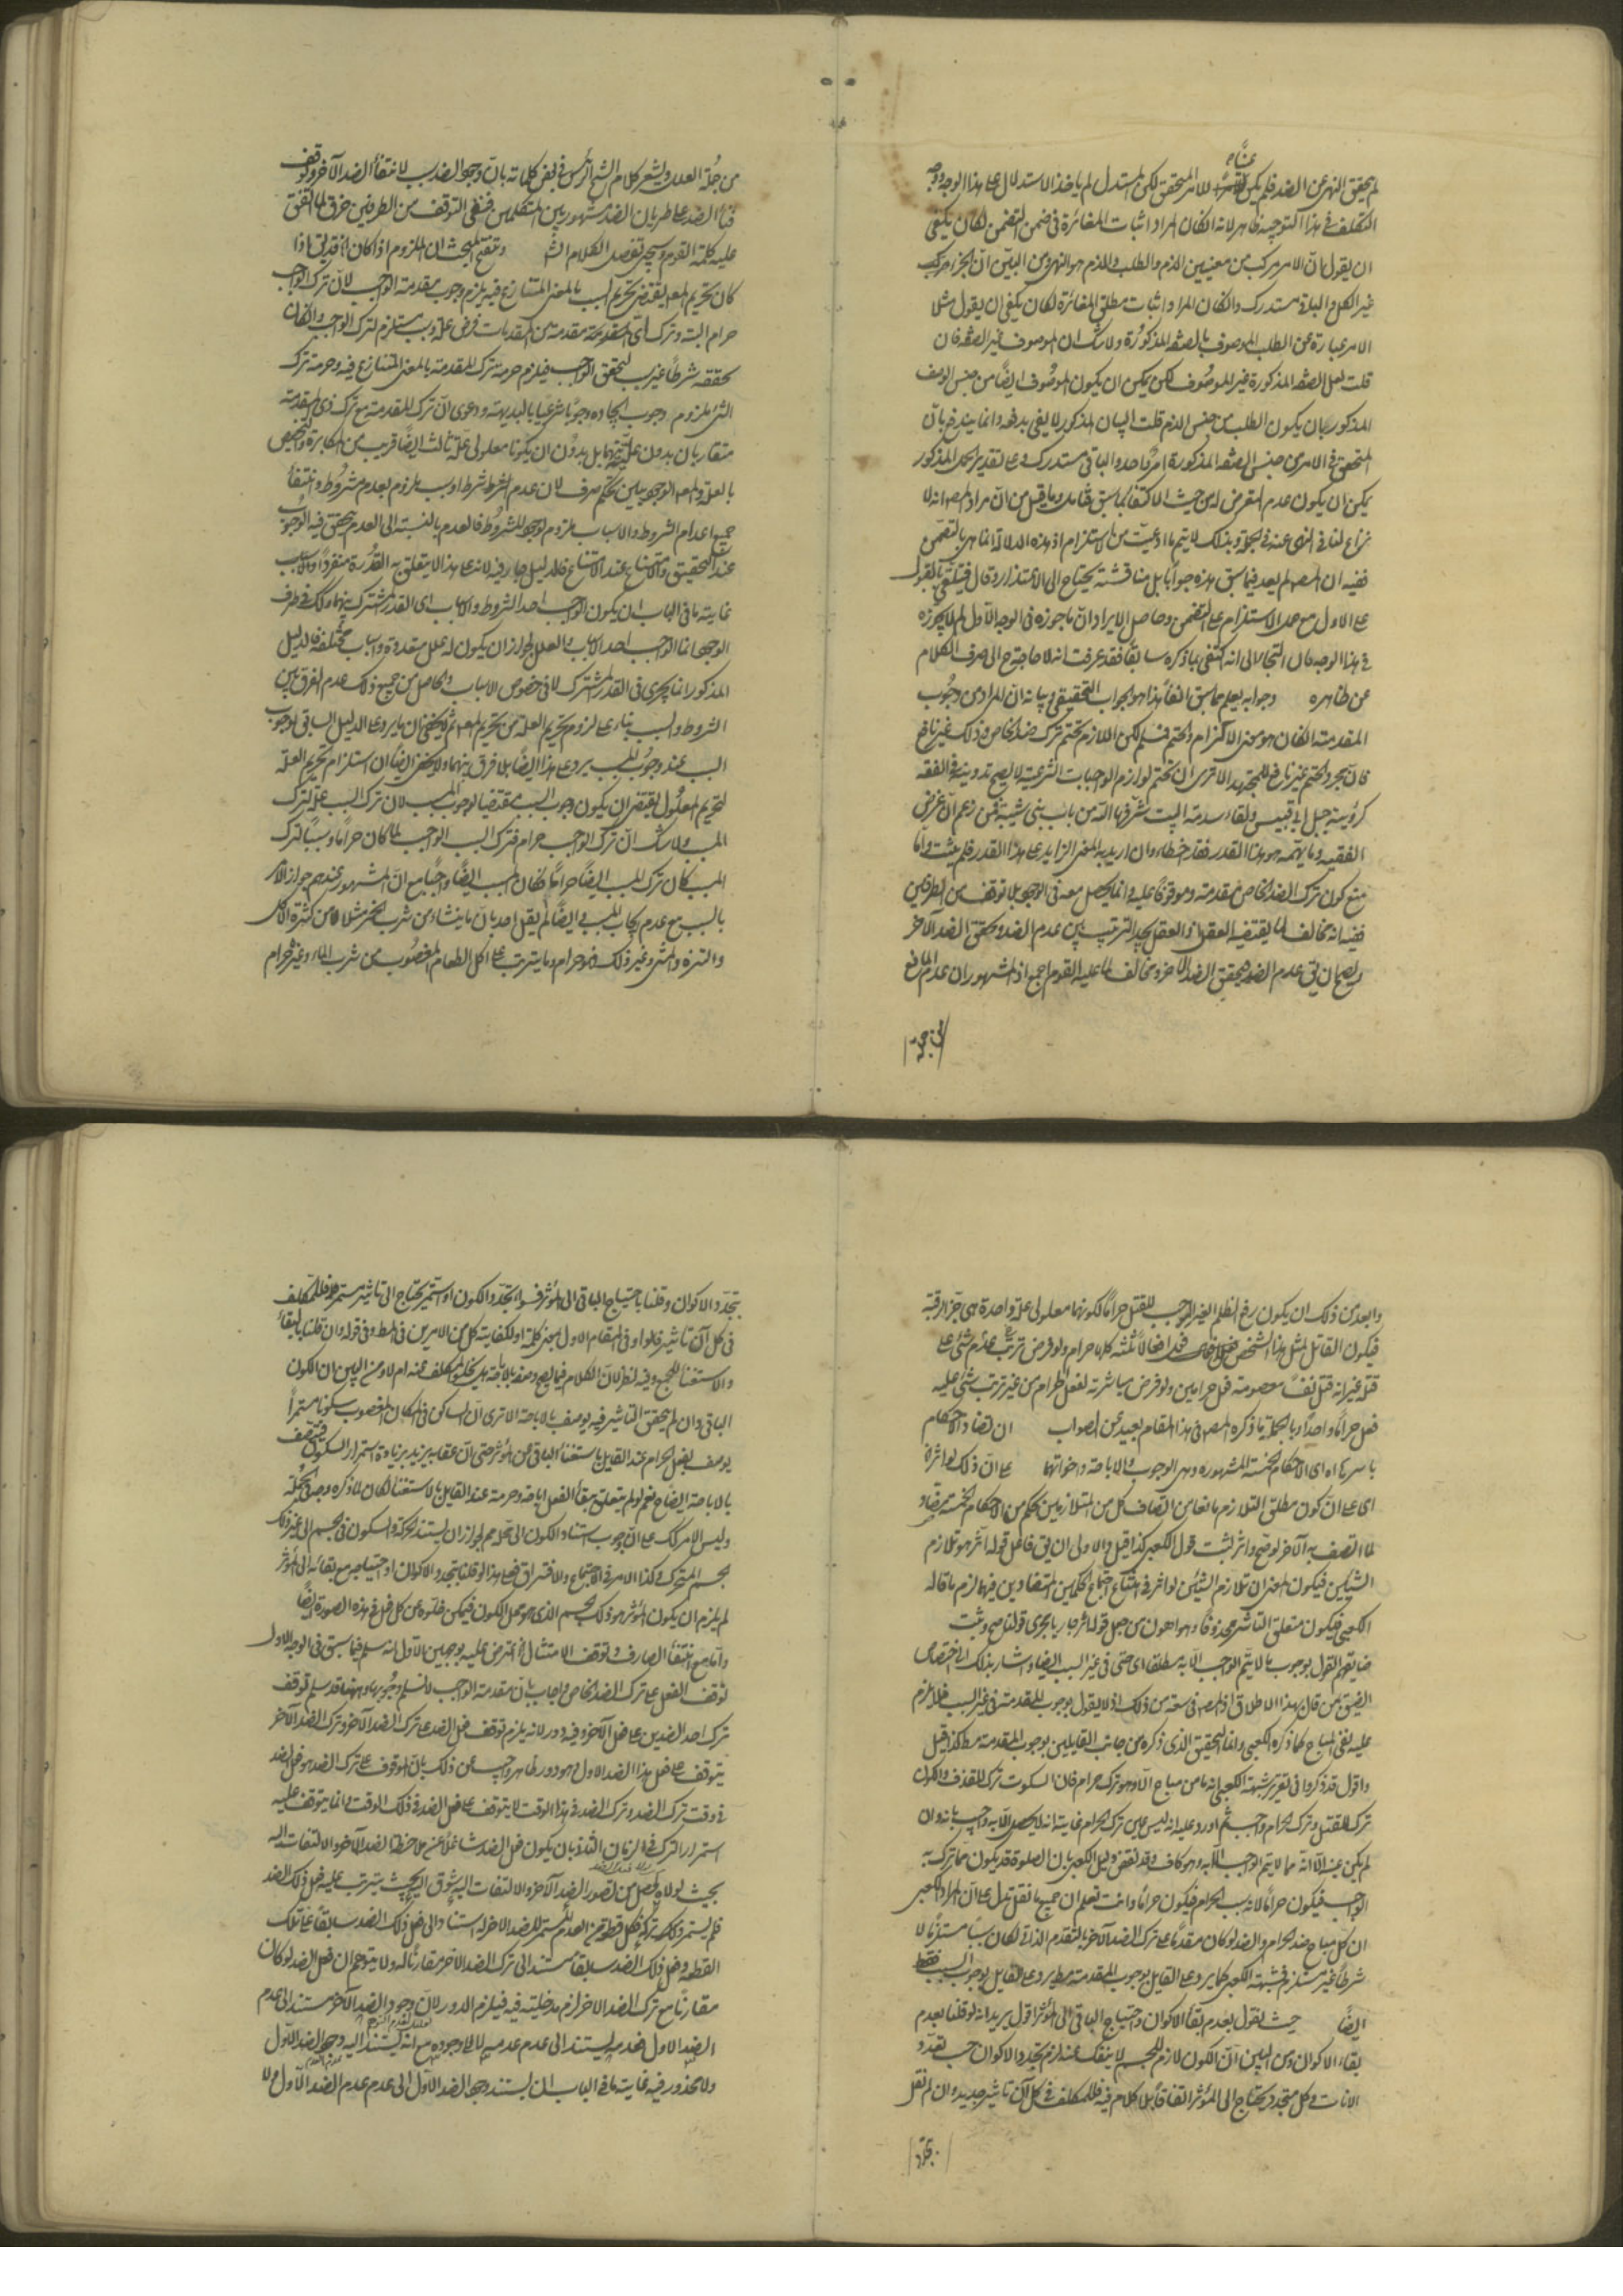 لم يتحقق النهى عن الضد فلم يكن للامر المتحقق لكن المستدل لم ياخذ الاستدلال على هذا الوجه ووجه
التكلف فى هذا التوجيه ظاهر لانه ان كان المراد اثبات المغائرة فى ضمن التضمن لكان يكفى
ان يقول بان الامر مركب من معنيين الذم والطلب والذم هو النهى ومن البين ان الجزء مركب
غير الكل والباقى مستدرك وان كان المراد اثبات مطلق المغائرة لكان يكفى ان يقول مثلا
الامر عبارة عن الطلب الموصوف بالصفة المذكورة ولا شك ان الموصوف غير الصفة فان
قلت لعل الصفة المذكورة غير الموصوف لكن يمكن ان يكون الموصوف ايضا من جنس الوصف
المذكور بان يكون الطلب من جنس الذم قلت البيان المذكور لا يفى بدفعه وانما يندفع بان
المتحقق فى الامر من جنس الصفة المذكورة امر واحد والباقى مستدرك وعلى تقدير الحمل المذكور
يمكن ان يكون عدم التعرض له من حيث الاكتفاء بما سبق فتامل وما قيل من ان مراد المصـ انه لا
نزاع لنا فى النهى عنه فى الجملة وبذلك لا يتم ما ادعيت من الاستلزام اذ هذه الدلالة انما هى بالتضمن
ففيه ان المصـ لم يعد فيما سبق هذه جوابا بل مناقشة يحتاج الى الاعتذار وقال فيتلقى بالقول
على الاول مع حمل الاستلزام على التضمن وحاصل الايراد ان ما جوزه فى الوجه الاول لم لا يجوزه
فى هذا الوجه فان التجأ الى انه اكتفى بما ذكره سابقا فقد عرفت انه لا حاجة الى صرف الكلام
عن ظاهره وجوابه يعلم مما سبق انفا هذا هو الجواب التحقيقى وبيانه ان المراد من وجوب
المقدمة ان كان هو معنى الالتزام والتحتم فمسلم لكن اللازم تحتم ترك ضد الخاص وذلك غير نافع
فان مجرد التحتم غير نافع للمجتهد الا ترى ان تحتم لوازم الواجبات الشرعية لا يصح تدوينه فى الفقه
كرؤية جبل ابى قبيس ولقاء سدنة البيت شرفها الله من باب بنى شيبة فمن زعم ان غرض
الفقيه وما يهمه هو هذا القدر فقد اخطاء وان اريد به المعنى الزايد على هذا القدر فلم يثبت واما
منع كون ترك الضد الخاص مقدمة وموقوفا عليه وانما يحصل معه فى الوجود بلا توقف من الطرفين
ففيه انه مخالف لما يقتضيه العقل اذ العقل يجد الترتيب بين عدم الضد وتحقق الضد الآخر
ويصح ان يق عدم الضد فتحقق الضد الآخر ومخالف لما عليه القوم اجمع اذ المشهور ان عدم المانع
من جملة
من جملة العلل ويشعر كلام الشيخ الرئيس فى بعض كلماته بان وجود الضد سبب لانتفاء الضد الآخر وتوقف
فناء الضد على طريان الضد مشهور بين المتكلمين فنفى التوقف من الطرفين خرق لما اتفق
عليه كلمة القوم وسيجئ تفصيل الكلام وتنقيح المبحث ان الملزوم اذا كان قد يق اذا
كان تحريم المعلول يقتضى تحريم السبب بالمعنى المتنازع فيه يلزم وجوب مقدمة الواجب لان ترك الواجب
حرام البتة وترك اى مقدمة من المقدمات فرض علة وسبب مستلزم لترك الواجب وان كان
تحققه شرطا غير سبب لتحقق الواجب فيلزم حرمة ترك المقدمة بالمعنى المتنازع فيه وحرمة ترك
الشئ يلزم وجوب ايجاده وجوبا شرعيا بالبديهة ودعوى ان ترك المقدمة مع ترك ذى المقدمة
متقاربان بدون علية بينهما بل بدون ان يكونا معلولى علة ثالث ايضا قريب من المكابرة والتخصيص
بالعلة والمعلول الوجوديين تحكم صرف لان عدم الشرط شرط او سبب ملزوم لعدم مشروط وانتفاء
جميع اعدام الشروط والاسباب ملزوم لوجود المشروط فالعدم بالنسبة الى العدم يتحقق فيه الوجوب
عند التحقيق والامتناع عند الامتناع فالدليل جار فيه لانه على هذا لا يتعلق به القدرة منفردا والاسباب
غاية ما فى الباب ان يكون الواجب احد الشروط والاسباب اى القدر المشترك بينهما وكك فى طرف
الوجود انما الواجب احد الاسباب والعلل لجواز ان يكون له علل متعددة واسباب مختلفة فالدليل
المذكور انما يجرى فى القدر المشترك لا فى خصوص الاسباب والحاصل من جميع ذلك عدم الفرق بين
الشروط والسبب بناء على لزوم تحريم العلة من تحريم المعلول ثم لا يخفى ان ما يرد على الدليل السابق لوجوب
السبب عند وجوب المسبب يرد على هذا ايضا بلا فرق بينهما ولا يخفى ايضا ان استلزام تحريم العلة
لتحريم المعلول يقتضى ان يكون وجوب السبب مقتضيا لوجوب المسبب لان ترك السبب علة لترك
المسبب ولا شك ان ترك الواجب حرام فترك السبب الواجب لما كان حراما وسببا لترك
المسبب كان ترك المسبب ايضا حراما فكان المسبب ايضا واجبا مع ان المشهور عندهم جواز الامر
بالسبب مع عدم ايجاب المسبب ايضا لم يقل احد بان ما ينشاء من شرب الخمر مثلا من كثرة الاكل
والتنزه والمشى وغير ذلك فهو حرام وما يترتب على اكل الطعام المغصوب من شرب الماء وغيره حرام
وابعد من ذلك ان يكون رفع الظلم الغير الموجب للقتل حراما لكونهما معلولى علة واحدة هى جز الرقبة
فيكون القاتل لمثل هذا الشخص فعل افعالا ثلثه كلها حرام ولو فرض ترتب عدم شئ على
قتله غير انه قتل نفسا معصومة فعل حرامين ولو فرض مباشرته لفعل الحرام من غير ترتب شئ عليه
فعل حراما واحدا وبالجملة ما ذكره المصـ فى هذا المقام بعيد عن الصواب ان تضاد الاحكام
باسرها اه اى الاحكام الخمسة المشهورة وهى الوجوب والاباحة واخواتهما على ان ذلك لو اثر اه
اى على ان كون مطلق التلازم مانعا من اتصاف كل من المتلازمين بحكم من الاحكام الخمسة مضاد
لما اتصف به الآخر لو صح واثر لثبت قول الكعبى كذا قيل والاولى ان يق فاعل قوله اثر هو تلازم
الشيئين فيكون المعنى ان تلازم الشيئين لو اثر فى امتناع اجتماع الحكمين المتضادين فيهما لزم ما قاله
الكعبى فيكون متعلق التاثير محذوفا وهو اهون من جعل قوله اثر جاريا مجرى قولنا صح وثبت
فنا بقوم القول بوجوب ما لا يتم الواجب الا به مطلقا اى حتى فى غير السبب ايضا واشار بذلك الى اختصاص
الضيق بمن قال بهذا الاطلاق اذ المصـ فى سعة من ذلك اذ لا يقول بوجوب المقدمة فى غير السبب فلا يلزم
عليه نفى المباح كما ذكره الكعبى وانما التحقيق الذى ذكره من جانب القايلين بوجوب المقدمة مط كذا قيل
واقول قد ذكروا فى تقرير شبهة الكعبى انه ما من مباح الا وهو ترك حرام فان السكوت ترك للقذف والسكون
ترك للقتل وترك الحرام واجب ثم اورد عليه انه ليس عين ترك الحرام غايته انه لا يحصل الا به واجيب بانه وان
لم يكن عينه الا انه مما لا يتم الواجب الا به وهو كاف وقد نقض دليل الكعبى بان الصلوة قد يكون مما ترك به
الواجب فيكون حراما لانه سبب الحرام فيكون حراما وانت تعلم ان جميع ما نقل يدل على ان المراد الكعبى
ان كل مباح ضد الحرام والضد لو كان مقدما على ترك الضد الآخر بالتقدم الذاتى لكان سببا مستلزما لا
شرطا غير مستلزم فشبهة الكعبى كما يرد على القايل بوجوب المقدمة مط يرد على القايل بوجوب السبب فقط
ايضا حيث نقول بعدم بقاء الاكوان واحتياج الباقى الى المؤثر اقول يريد انه لو قلنا بعدم
بقاء الاكوان ومن البين ان الكون لازم للجسم لا ينفك عنه لزم تجدد الاكوان حسب تعدد
الآنات وكل متجدد يحتاج الى المؤثر اتفاقا بلا كلام فيه فللمكلف فى كل آن تاثير جديد وان لم نقل
بتجدد
بتجدد الاكوان وقلنا باحتياج الباقى الى المؤثر فسواء تجدد الكون او استمر يحتاج الى تاثير مستمر فللمكلف
فى كل آن تاثير فلو اوفى المقام الاول بمعنى كلمة او لكفاية كل من الامرين فى المط وفى قوله وان قلنا بالبقاء
والاستغناء للجميع وفيه نظر لان الكلام فيما يصح وصفه بالاباحة بل يخلو المكلف عنه ام لا ومن البين ان الكون
الباقى وان لم يتحقق التاثير فيه يوصف بالاباحة الا ترى ان الساكن فى المكان المغصوب سكونا مستمرا
يوصف بفعل الحرام عند القايل باستغناء الباقى عن المؤثر حتى ان عقابه يزيد بزيادة استمرار السكون فيتصف
بالاباحة ايضا نعم لو لم يتعلق ببقاء الفعل اباحة وحرمة عند القايل بالاستغناء لكان لما ذكره وجه فى الجملة
وليس الامر كك على ان وجوب استناد الكون الى محله مم لجواز ان يستند الحركة والسكون فى الجسم الى غير ذلك
الجسم المتحرك وكذا الامر فى الاجتماع والافتراق فعلى هذا لو قلنا بتجدد الاكوان او احتياجه مع بقائه الى المؤثر
لم يلزم ان يكون المؤثر هو ذلك الجسم الذى هو محل الكون فيمكن خلوه عن كل فعل فى هذه الصورة ايضا
واما مع انتفاء الصارف وتوقف الامتثال اه اعترض عليه بوجهين الاول انه سلم فيما سبق فى الوجه الاول
توقف الفعل على ترك الضد الخاص واجاب بان مقدمة الواجب لا نسلم وجوبها وههنا قد سلم توقف
ترك احد الضدين على فعل الآخر وفيه دور لانه يلزم توقف فعل الضد على ترك الضد الآخر وترك الضد الآخر
يتوقف على فعل هذا الضد الاول وهو دور ظاهر واجيب عن ذلك بان الموقوف على ترك الضد هو فعل الضد
فى وقت ترك الضد وترك الضد فى هذا الوقت لا يتوقف على فعل الضد فى ذلك الوقت وانما يتوقف عليه
استمرار الترك فى الزمان الثانى بان يكون فعل الضد شاغلا عن ملاحظة الضد الآخر والالتفات اليه
بحيث لولاه لحصل من تصور الضد الآخر والالتفات اليه شوق اليه بحيث يترتب عليه فعل ذلك الضد
فلم يستمر ذلك تركه فكل قطعة من العدم المستمر للضد الآخر له استناد الى فعل ذلك الضد سابقا على تلك
القطعة وفعل ذلك الضد سابقا مستند الى ترك الضد الآخر مقارنا له ولا يتوهم ان فعل الضد لو كان
مقارنا مع ترك الضد الآخر لزم مدخليته فيه فيلزم الدور لان وجود الضد الآخر مستند الى عدم
الضد الاول فعدمه يستند الى عدم عدمه لا الى وجوده مع انه يستند اليه وجود الضد الاول
ولا محذور فيه غاية ما فى الباب ان يستند وجود الضد الاول الى عدم عدم الضد الاول ولا